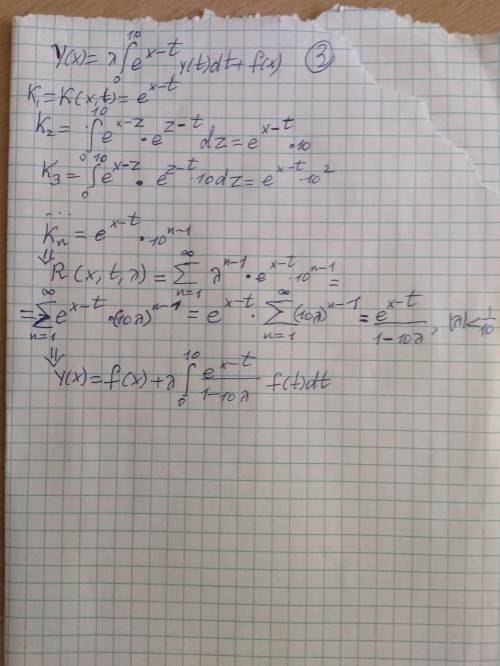 y(x) = λ∫₀¹⁰ e^{x-t} y(t)dt + f(x) ③
K₁ = K(x,t) = e^{x-t}
K₂ = ∫₀¹⁰ e^{x-z} · e^{z-t} dz = e^{x-t} · 10
K₃ = ∫₀¹⁰ e^{x-z} · e^{z-t} · 10dz = e^{x-t} · 10²
...
Kₙ = e^{x-t} · 10^{n-1}
⇓
R(x,t,λ) = ∑_{n=1}^{∞} λ^{n-1} · e^{x-t} · 10^{n-1} =
= ∑_{n=1}^{∞} e^{x-t} · (10λ)^{n-1} = e^{x-t} · ∑_{n=1}^{∞} (10λ)^{n-1} = e^{x-t}/(1-10λ), |λ| < 1/10
⇓
y(x) = f(x) + λ∫₀¹⁰ e^{x-t}/(1-10λ) f(t)dt